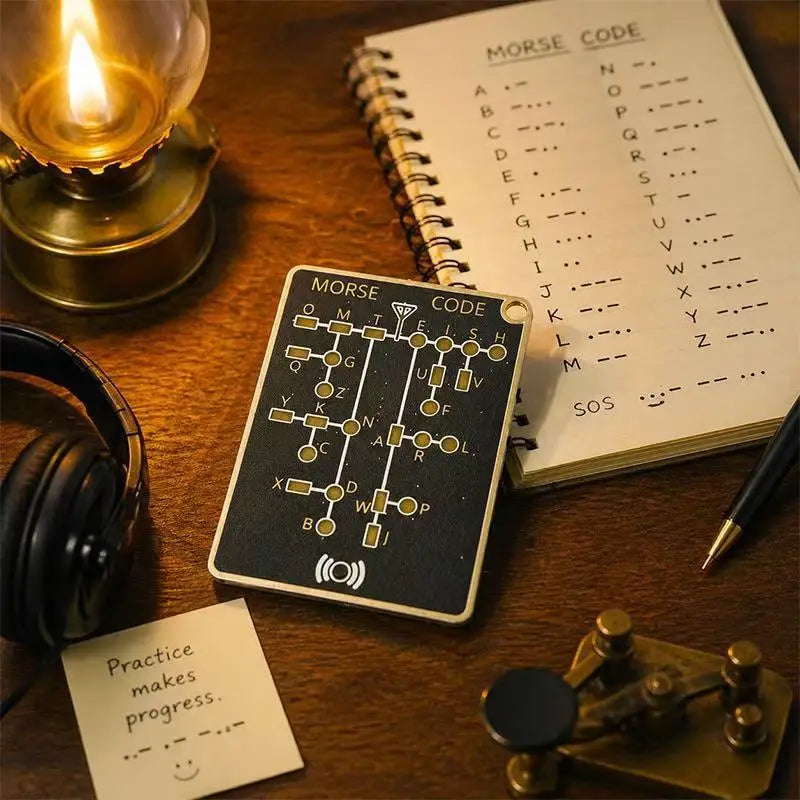 MORSE CODE
A .-
B -...
C -.-.
D -..
E .
F ..-.
G --.
H ....
I ..
J .---
K -.-
L .-..
M --
N -.
O ---
P .--.
Q --.-
R .-.
S ...
T -
U ..-
V ...-
W .--
X -..-
Y -.--
Z --..
SOS
MORSE CODE
O M T E I S H
Q G U V
Z F
Y K N A R L
C
X D W P
B J
Practice
makes
progress.